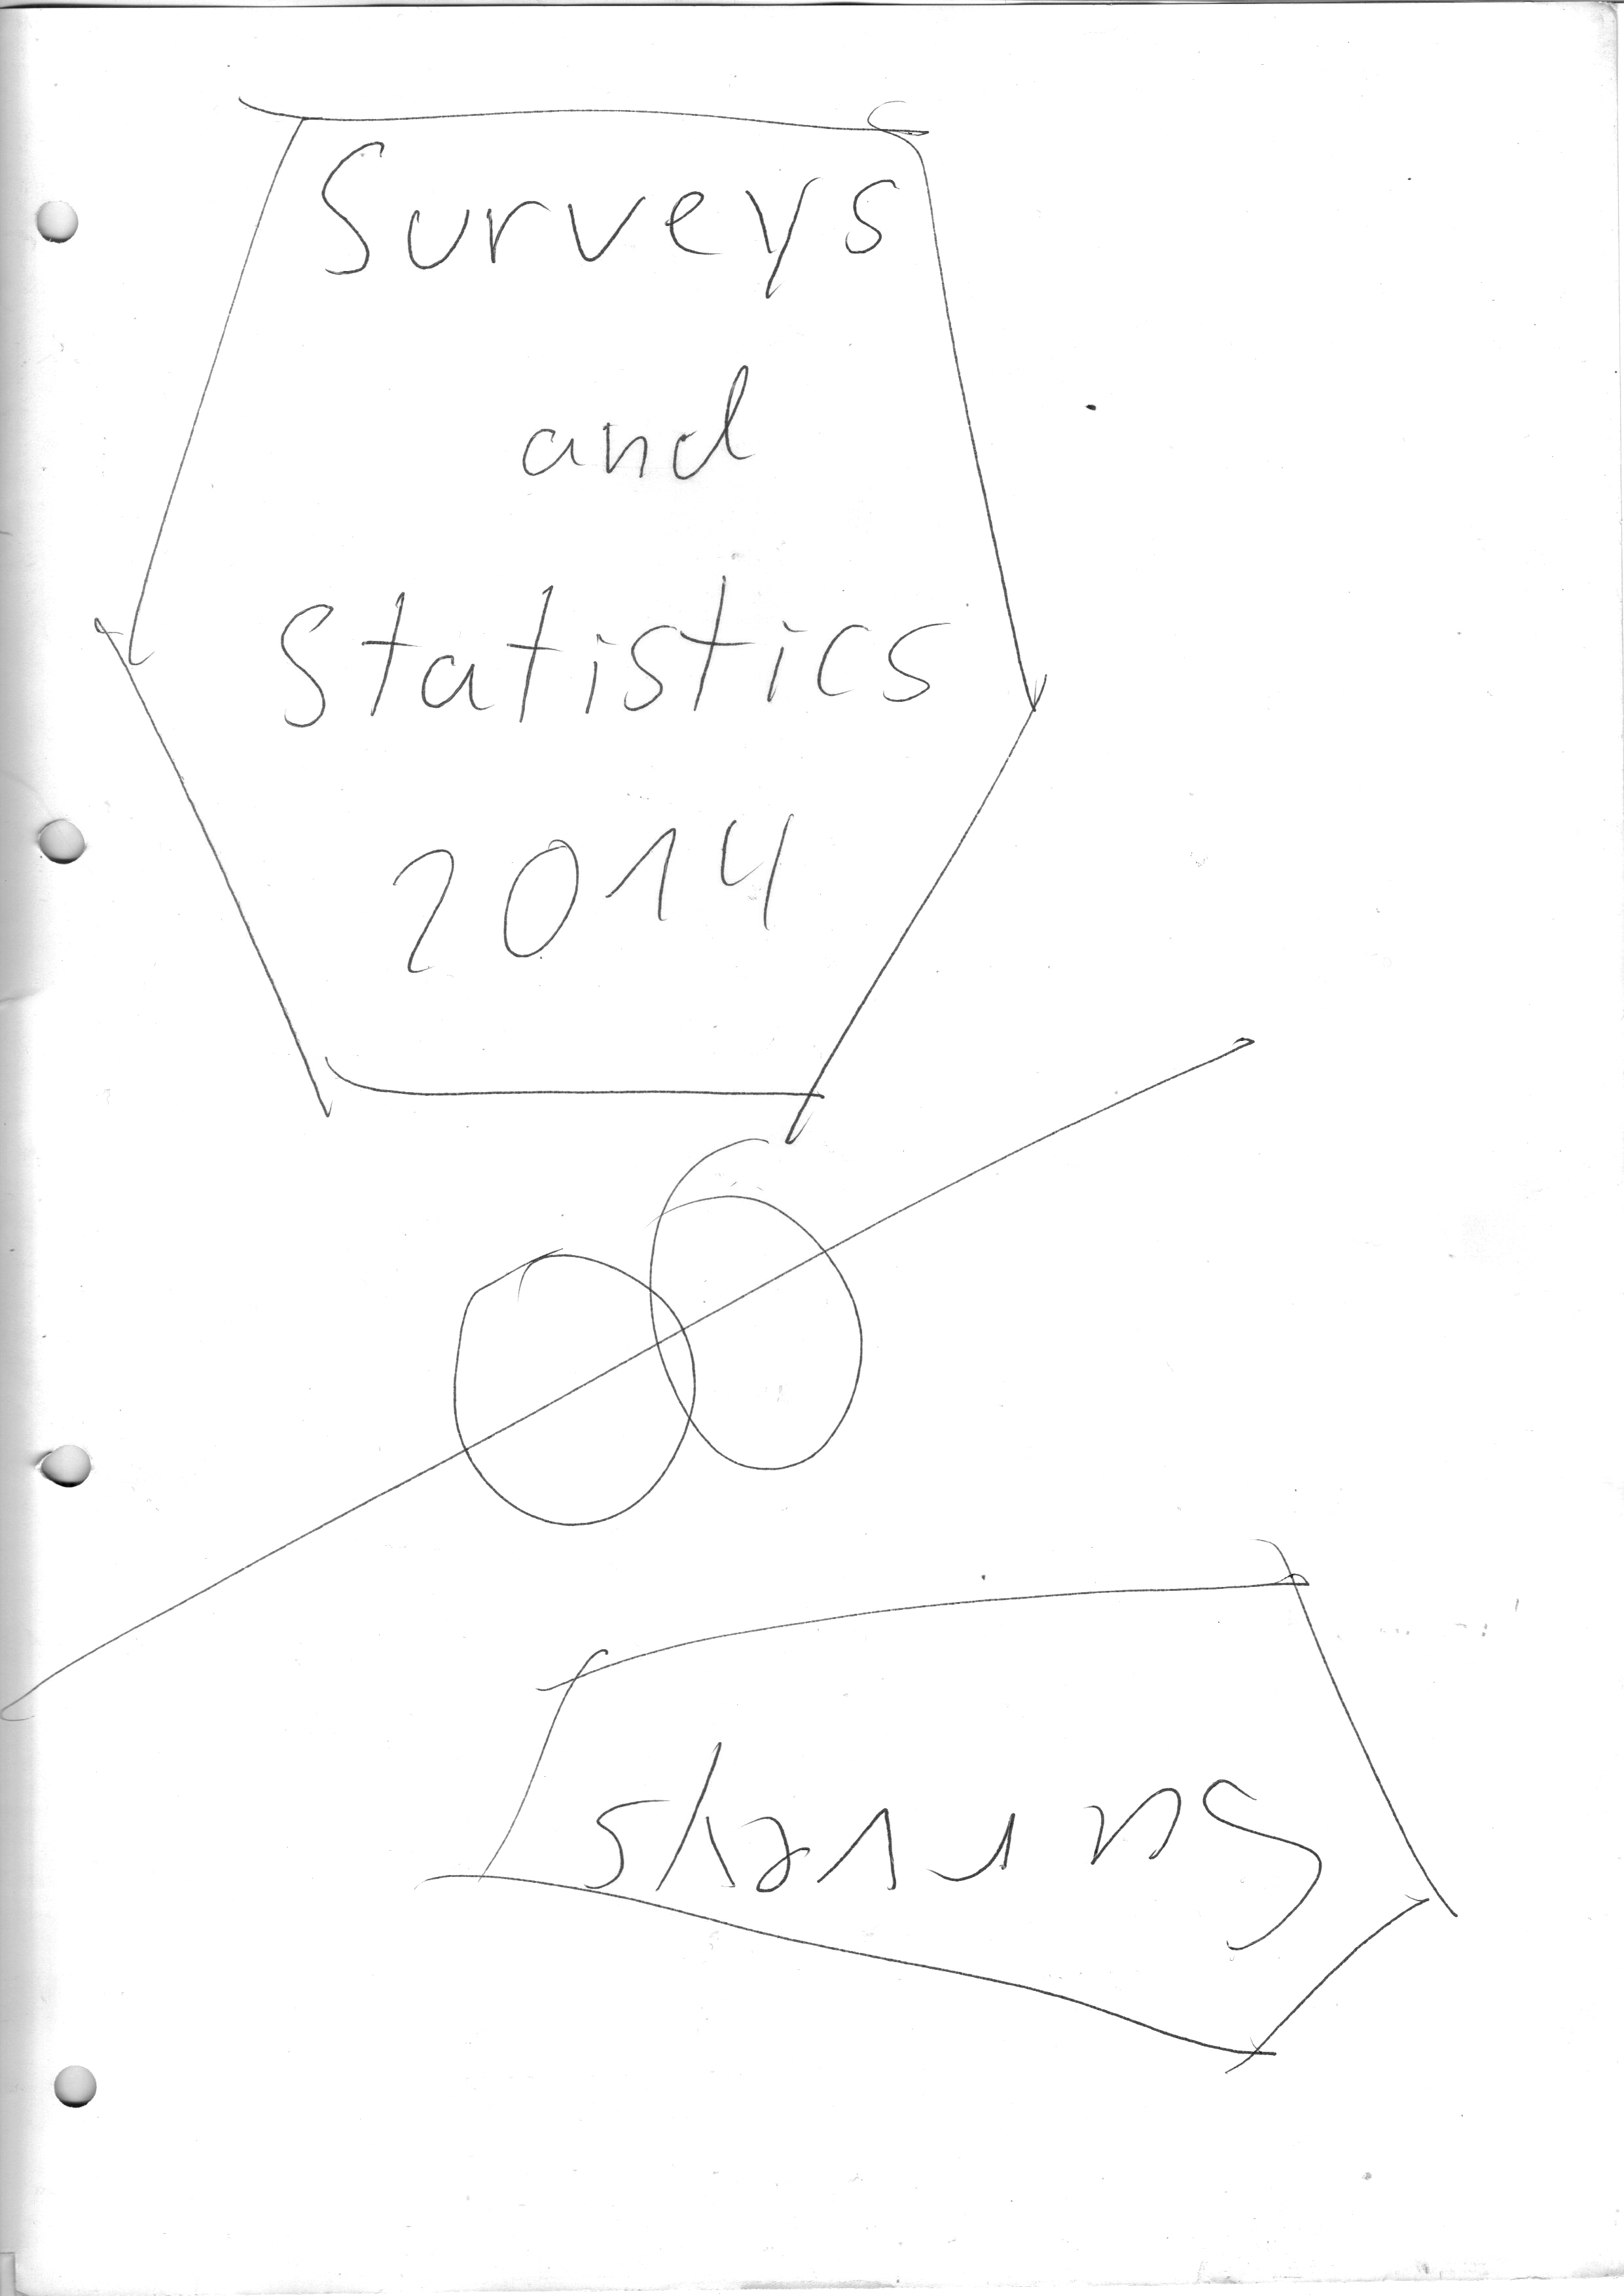 Surveys
and
Statistics
2014
Surveys